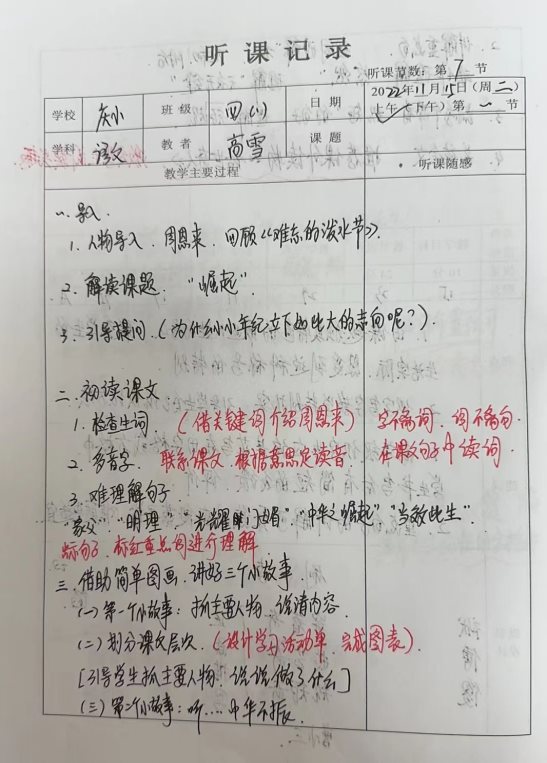 听课记录
听课节数：第7节
学校 友小 班级 四(1) 日期 2022年11月15日(周二)
(上午 下午) 第一节
学科 语文 教者 高雪 课题
教学主要过程 听课随感
一、导入
1. 人物导入. 周恩来. 回顾《难忘的泼水节》.
2. 解读课题. "崛起".
3. 引导提问.(为什么小小年纪立下如此大的志向呢?).
二. 初读课文
1. 检查生词. (借关键词介绍周恩来) 字不离词. 词不离句.
2. 多音字. 联系课文. 根据意思定读音. 在课文句子中读词.
3. 难理解句子.
"明理" "光耀门楣" "中华之崛起" "当效此生".
标红重点词进行理解
三. 借助简单图画. 讲好三个小故事.
(一) 第一个小故事: 抓主要人物. 说清内容.
(二) 划分课文层次. (设计学习活动单. 完成图表).
[引导学生抓主要人物. 说说做了什么]
(三) 第二个小故事: 听....中华不振.